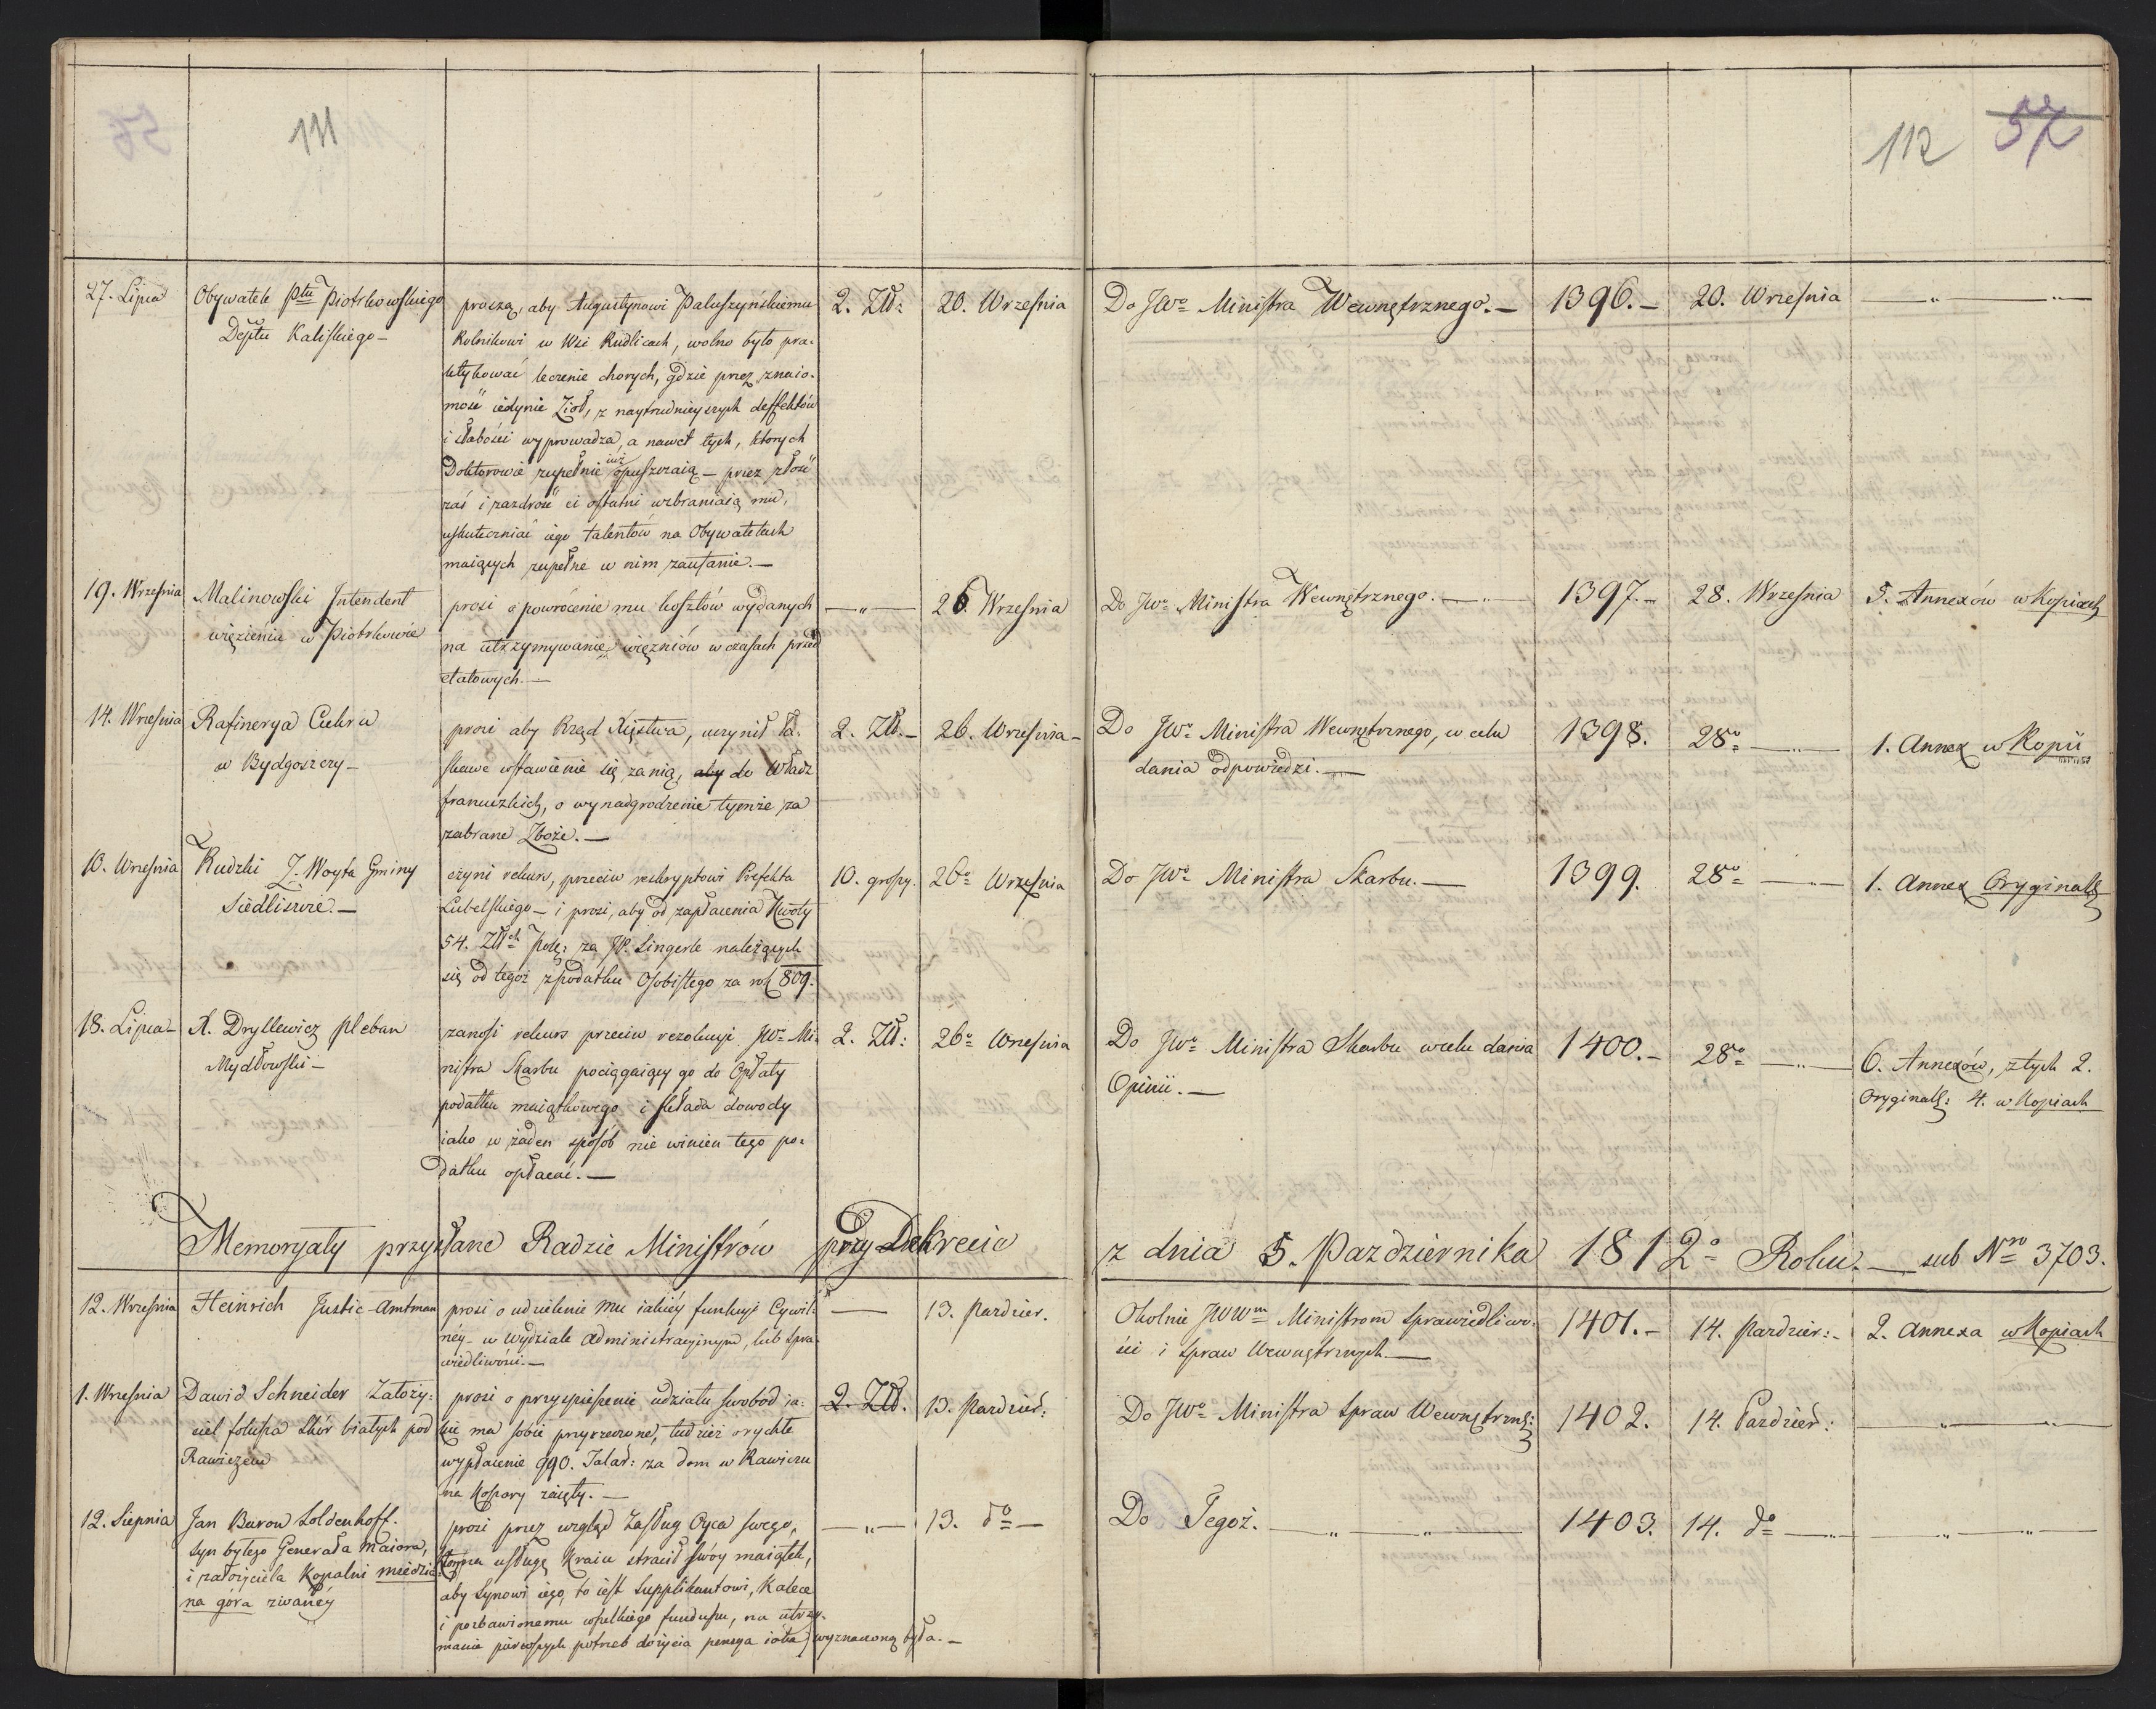 111
112 57
27. Lipca
Obywatele Ptu Piotrkowskiego
Deptu Kaliskiego —
proszą, aby Augustynowi Paluszyńskiemu
Rolnikowi w Wsi Rudlicach, wolno było pra-
ktykować leczenie chorych, gdzie przez znaio-
mość iedynie Ziół, z naytrudnieyszych deffektów
i słabości wyprowadza, a nawet tych, których
Doktorowie zupełnie iuż opuszczaią — przez złość
zaś i zazdrość ci ostatni wzbraniaią mu,
uskuteczniać iego talentów na Obywatelach
maiących zupełne w nim zaufanie. —
2. Złł:
20. Września
Do JWo Ministra Wewnętrznego. —
1396. —
20. Września
— „ — „ —
19. Września
Malinowski Intendent
więzienia w Piotrkowie
prosi o powrócenie mu kosztów wydanych
na utrzymywanie więzniów w czasach przed
etatowych. —
— „ —
26. Września
Do JWo Ministra Wewnętrznego. — „ —
1397. —
28. Września
5. Annexów w Kopiach
14. Września
Rafinerya Cukru
w Bydgoszczy —
prosi aby Rząd Xięstwa, uczynił ła-
skawe wstawienie się za nią, aby do Władz
francuzkich, o wynadgrodzenie tymże za
zabrane Zboże. —
2. Złł. —
26. Września —
Do JWo Ministra Wewnętrznego, w celu
dania odpowiedzi. —
1398.
28o — „ —
1. Annex w Kopii
10. Września
Rudzki Z. Woyta Gminy
Siedliszcze. —
czyni rekurs, przeciw reskryptowi Prefekta
Lubelskiego — i prosi, aby od zapłacenia Kwoty
54. Złłch pols: za JP. Lingerle należących
się od tegoż z podatku Osobistego za rok 809.
10. groszy.
26o Września
Do JWo Ministra Skarbu. —
1399.
28o — „ —
1. Annex Oryginall:
18. Lipca —
X. Dryllewicz pleban
Mydłowski —
zanosi rekurs przeciw rezolucyi JWo Mi-
nistra Skarbu pociągaiącey go do Opłaty
podatku maiątkowego i składa dowody
iako w żaden sposób nie winien tego po-
datku opłacać. —
2. Złł:
26o Września
Do JWo Ministra Skarbu w celu dania
Opinii. —
1400. —
28o — „ —
6. Annexów, z tych 2.
Oryginall: 4. w Kopiach
Memoryały przysłane Radzie Ministrów przy Dekrecie z dnia 5. Pazdziernika 1812o Roku. — sub Nro 3703.
12. Września
Heinrich Justic-Amtman
prosi o udzielenie mu iakiéy funkcyi Cywil-
néy — w wydziale administracyinym, lub Spra-
wiedliwości. —
—
13. Pazdzier.
Okolnie JWWm Ministrom Sprawiedliwo-
ści i Spraw Wewnętrznych. —
1401. —
14. Pazdzier: —
2. Annexa w Kopiach
1. Września
Dawid Schneider Założy-
ciel folusza Skór białych pod
Rawiczem
prosi o przyspieszenie udziału swobód ia-
kie ma sobie przyrzeczone, tudzież rychłe
wypłacenie 990. Talar: za dom w Rawiczu
na Koszary zaięty. —
2. Złł.
13. Pazdzier:
Do JWo Ministra Spraw Wewnętrzn:
1402.
14. Pazdzier:
— „ — „ —
12. Sierpnia
Jan Baron Soldenhoff.
syn byłego Generała Maiora,
i założyciela Kopalni miedzia-
na góra zwanéy
prosi przez wzgląd Zasług Oyca swego,
który na usługę Kraiu stracił swóy maiątek,
aby Synowi iego, to iest Supplikantowi, Kalece
i pozbawionemu wszelkiego funduszu, na utrzy-
manie pierwszych potrzeb do życia pensya iaka wyznaczoną była. —
— „ —
13. do —
Do Tegoż. — „ — „ —
1403.
14. do — „ —
— „ — „ —